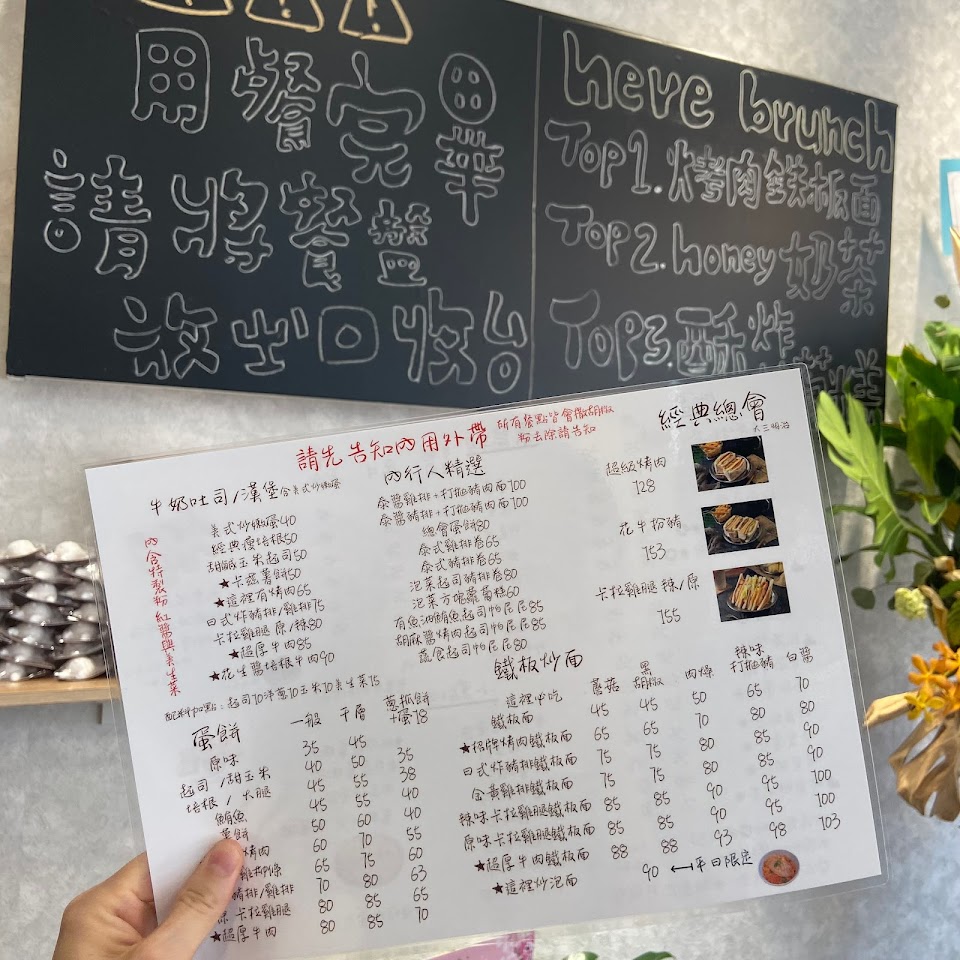 用餐完畢
請將餐盤
放出口收台
here brunch
Top1.烤肉鐵板面
Top2.honey奶茶
Top3.酥炸
請先告知內用外帶
所有餐點皆會撒胡椒
粉去除請告知
經典總會
大三明治
超級烤肉
128
花牛扮豬
153
卡拉雞腿 辣/原
155
牛奶吐司/漢堡含美式炒嫩蛋
內含特製粉紅醬與美生菜
美式炒嫩蛋40
經典煙培根50
甜鹹玉米起司50
★卡茲薯餅50
★這裡有烤肉65
日式炸豬排/雞排75
卡拉雞腿 原/辣80
★超厚牛肉85
★花生醬培根牛肉90
配料加點：起司10洋蔥10玉米10美生菜15
內行人精選
泰醬雞排+打拋豬肉面100
泰醬豬排+打拋豬肉面100
總會蛋餅80
泰式雞排卷65
泰式豬排卷65
泡菜起司豬排卷80
泡菜方塊蘿蔔糕60
有魚油鮪魚起司帕尼尼85
胡麻醬烤肉起司帕尼尼85
蔬食起司帕尼尼80
蛋餅 一般 千層 蔥抓餅+蛋18
原味 35 45 35
起司/甜玉米 40 50 38
培根/火腿 45 55 40
鮪魚 45 55 40
薯餅 50 60 55
烤肉 65 70 60
雞柳條 70 75 63
豬排/雞排 80 65
卡拉雞腿 80 85 70
★超厚牛肉 80 85
鐵板炒面
這裡中吃 蘑菇 黑胡椒 肉燥 辣味打拋豬 白醬
鐵板面 45 45 50 65 70
★招牌烤肉鐵板面 65 65 70 80 80
日式炸豬排鐵板面 75 75 80 85 90
金黃雞排鐵板面 75 75 80 85 90
辣味卡拉雞腿鐵板面 85 85 90 95 100
原味卡拉雞腿鐵板面 85 85 90 95 100
★超厚牛肉鐵板面 88 88 93 98 103
★這裡炒泡面 90 ←平日限定